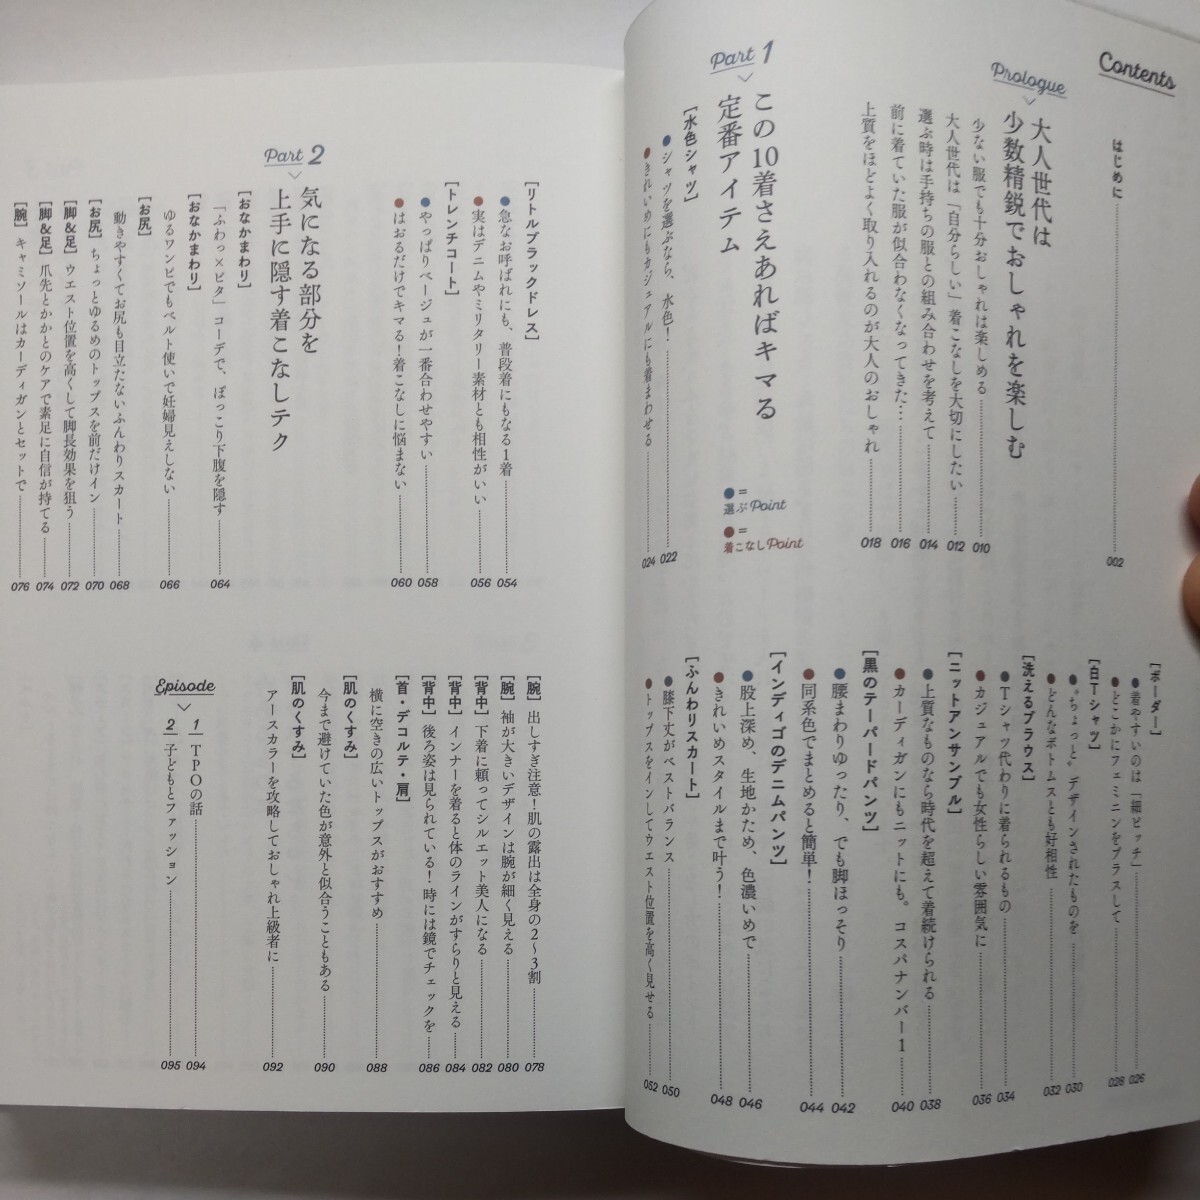 Contents
はじめに 002
Prologue
大人世代は
少数精鋭でおしゃれを楽しむ
少ない服でも十分おしゃれは楽しめる 010
大人世代は「自分らしい」着こなしを大切にしたい 012
選ぶ時は手持ちの服との組み合わせを考えて 014
前に着ていた服が似合わなくなってきた… 016
上質をほどよく取り入れるのが大人のおしゃれ 018
Part 1
この10着さえあればキマる
定番アイテム
●=
選ぶPoint
●=
着こなしPoint
[水色シャツ]
●シャツを選ぶなら、水色! 022
●きれいめにもカジュアルにも着まわせる 024
[ボーダー]
●着やすいのは「細ピッチ」 026
●どこかにフェミニンをプラスして 028
[白Tシャツ]
●“ちょっと”デザインされたものを 030
●どんなボトムスとも好相性 032
[洗えるブラウス]
●Tシャツ代わりに着られるもの 034
●カジュアルでも女性らしい雰囲気に 036
[ニットアンサンブル]
●上質なものなら時代を超えて着続けられる 038
●カーディガンにもニットにも。コスパナンバー1 040
[黒のテーパードパンツ]
●腰まわりゆったり、でも脚ほっそり 042
●同系色でまとめると簡単! 044
[インディゴのデニムパンツ]
●股上深め、生地かため、色濃いめで 046
●きれいめスタイルまで叶う! 048
[ふんわりスカート]
●膝下丈がベストバランス 050
●トップスをインしてウエスト位置を高く見せる 052
[リトルブラックドレス]
●急なお呼ばれにも、普段着にもなる1着 054
●実はデニムやミリタリー素材とも相性がいい 056
[トレンチコート]
●やっぱりベージュが一番合わせやすい 058
●はおるだけでキマる!着こなしに悩まない 060
Part 2
気になる部分を
上手に隠す着こなしテク
[おなかまわり]
「ふわっ×ピタ」コーデで、ぽっこり下腹を隠す 064
[おなかまわり]
ゆるワンピでもベルト使いで妊婦見えしない 066
[お尻]
動きやすくてお尻も目立たないふんわりスカート 068
[お尻] ちょっとゆるめのトップスを前だけイン 070
[脚&足] ウエスト位置を高くして脚長効果を狙う 072
[脚&足] 爪先とかかとのケアで素足に自信が持てる 074
[腕] キャミソールはカーディガンとセットで 076
[腕] 出しすぎ注意!肌の露出は全身の2〜3割 078
[腕] 袖が大きいデザインは腕が細く見える 080
[背中] 下着に頼ってシルエット美人になる 082
[背中] インナーを着ると体のラインがすらりと見える 084
[背中] 後ろ姿は見られている!時には鏡でチェックを 086
[首・デコルテ・肩]
横に空きの広いトップスがおすすめ 088
[肌のくすみ]
今まで避けていた色が意外と似合うこともある 090
[肌のくすみ]
アースカラーを攻略しておしゃれ上級者に 092
Episode
1 TPOの話 094
2 子どもとファッション 095